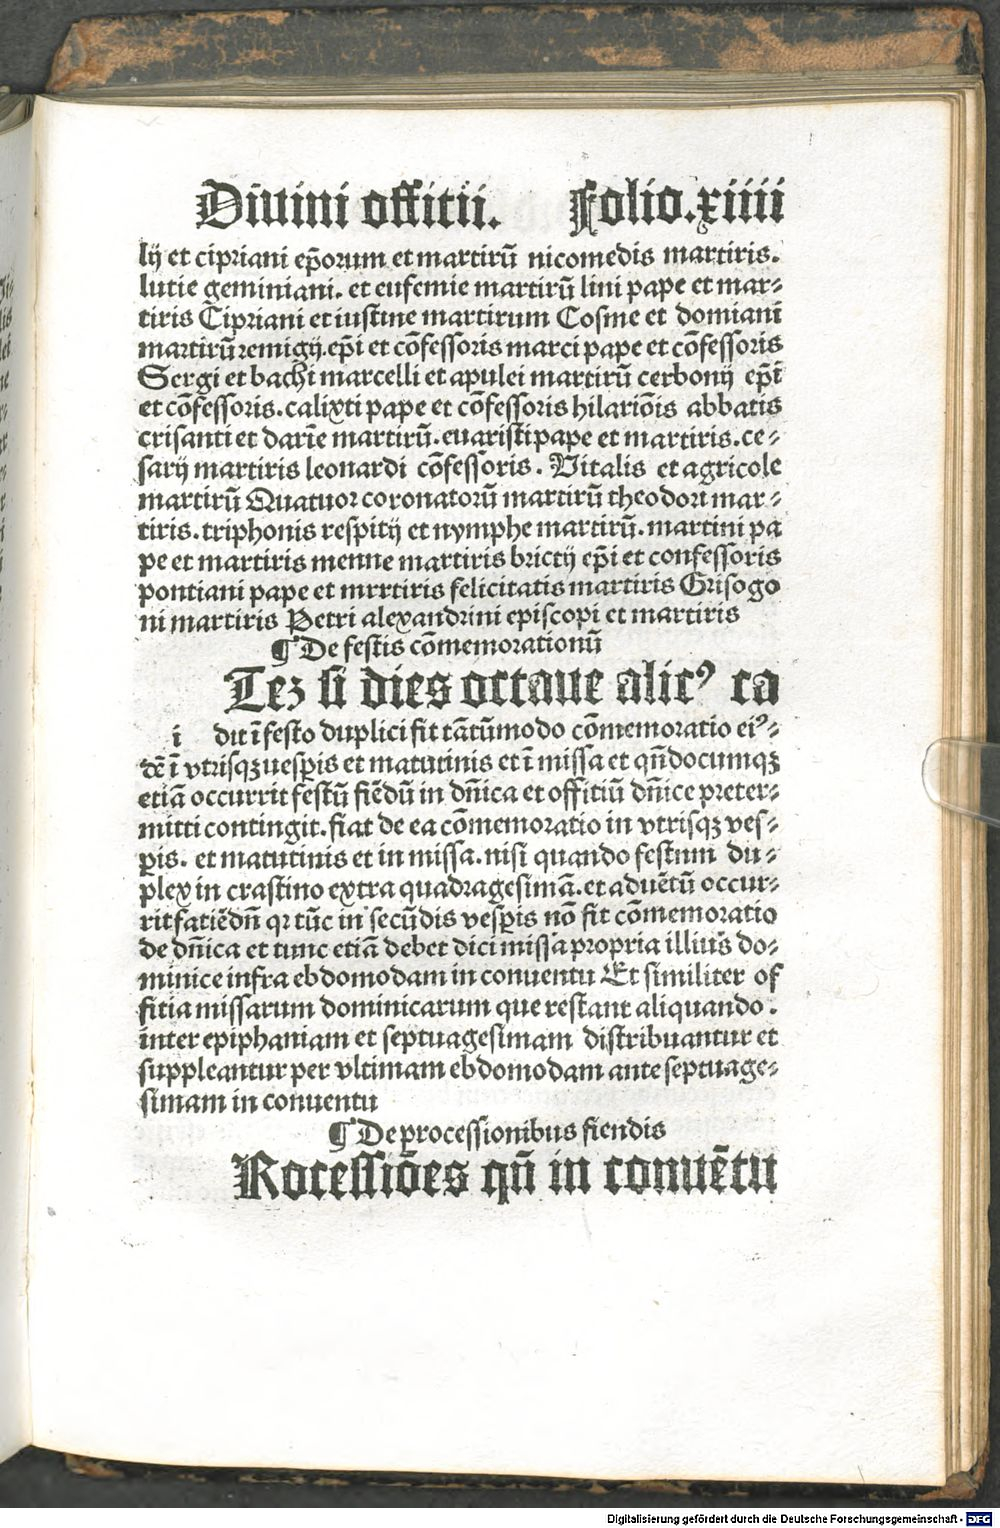 Diuini offitii. Folio.xiiii
lij et cipriani ep̄orum et martirū nicomedis martiris.
lutie geminiani. et eufemie martirū lini pape et mar⸗
tiris Cipriani et iustine martirum Cosme et domiani
martirū remigij. ep̄i et cōfessoris marci pape et cōfessoris
Sergi et bachi marcelli et apulei martirū cerbonij ep̄i
et cōfessoris. calixti pape et cōfessoris hilariōis abbatis
crisanti et darie martirū. euaristi pape et martiris. ce⸗
sarij martiris leonardi cōfessoris. Vitalis et agricole
martirū Quatuor coronatorū martirū theodori mar⸗
tiris. triphonis respitij et nymphe martirū. martini pa
pe et martiris menne martiris brictij ep̄i et confessoris
pontiani pape et mrrtiris felicitatis martiris Grisogo
ni martiris Petri alexandrini episcopi et martiris
¶ De festis cōmemorationū
Teꝫ si dies octaue alicꝰ ca
i dit ī festo duplici fit tātūmodo cōmemoratio eiꝰ⸗
dē ī vtrisqꝫ uesp̄is et matutinis et ī missa et qn̄documqꝫ
etiā occurrit festū fiēdū in dn̄ica et offitiū dn̄ice preter⸗
mitti contingit. fiat de ea cōmemoratio in vtrisqꝫ ves⸗
p̄is. et matutinis et in missa. nisi quando festum du⸗
plex in crastino extra quadragesimā. et aduētū occur⸗
rit fatiēdn̄ qr tūc in secūdis vesp̄is nō fit cōmemoratio
de dn̄ica et tunc etiā debet dici missa propria illius do⸗
minice infra ebdomodam in conuentu Et similiter of
fitia missarum dominicarum que restant aliquando.
inter epiphaniam et septuagesimam distribuantur et
suppleantur per vltimam ebdomodam ante septuage⸗
simam in conuentu
¶ De processionibus fiendis
Rocessiōes qn̄ in conuētu
Digitalisierung gefördert durch die Deutsche Forschungsgemeinschaft - DFG